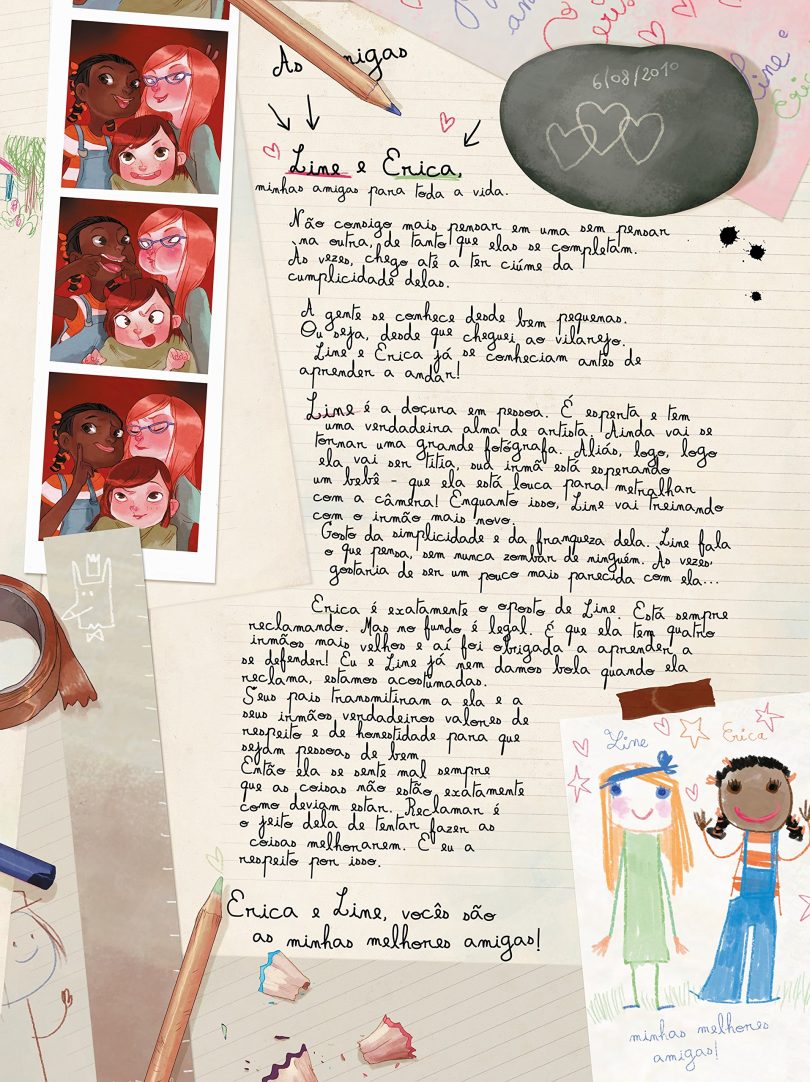 As amigas
6/08/2010
Line e
Eris
Line e Erica,
minhas amigas para toda a vida.
Não consigo mais pensar em uma sem pensar
na outra, de tanto que elas se completam.
Às vezes, chego até a ter ciúme da
cumplicidade delas.
A gente se conhece desde bem pequenas.
Ou seja, desde que cheguei ao vilarejo.
Line e Erica já se conheciam antes de
aprender a andar!
Line é a doçura em pessoa. É esperta e tem
uma verdadeira alma de artista. Ainda vai se
tornar uma grande fotógrafa. Aliás, logo, logo
ela vai ser titia, sua irmã está esperando
um bebê - que ela está louca para metralhar
com a câmera! Enquanto isso, Line vai treinando
com o irmão mais novo.
Gosto da simplicidade e da franqueza dela. Line fala
o que pensa, sem nunca zombar de ninguém. Às vezes,
gostaria de ser um pouco mais parecida com ela...
Erica é exatamente o oposto de Line. Está sempre
reclamando. Mas no fundo é legal. É que ela tem quatro
irmãos mais velhos e aí foi obrigada a aprender a
se defender! Eu e Line já nem damos bola quando ela
reclama, estamos acostumadas.
Seus pais transmitiram a ela e a
seus irmãos verdadeiros valores de
respeito e de honestidade para que
sejam pessoas de bem.
Então ela se sente mal sempre
que as coisas não estão exatamente
como deviam estar. Reclamar é
o jeito dela de tentar fazer as
coisas melhorarem. E eu a
respeito por isso.
Erica e Line, vocês são
as minhas melhores amigas!
Line Erica
minhas melhores
amigas!